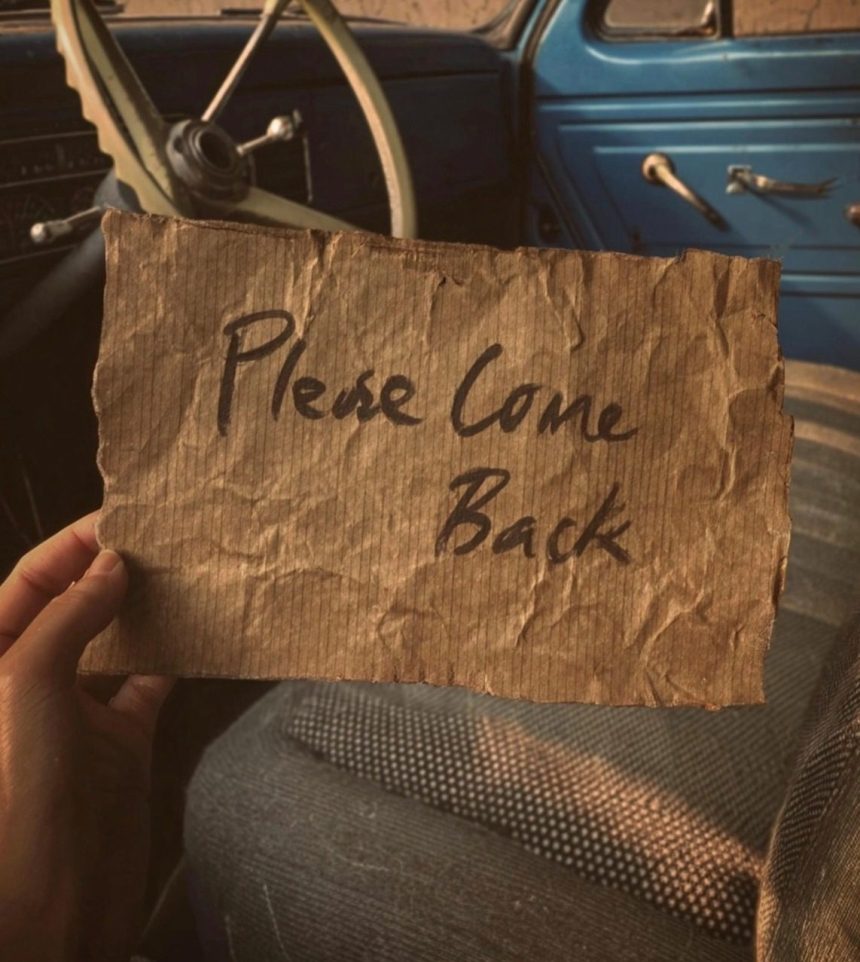 Please Come
Back